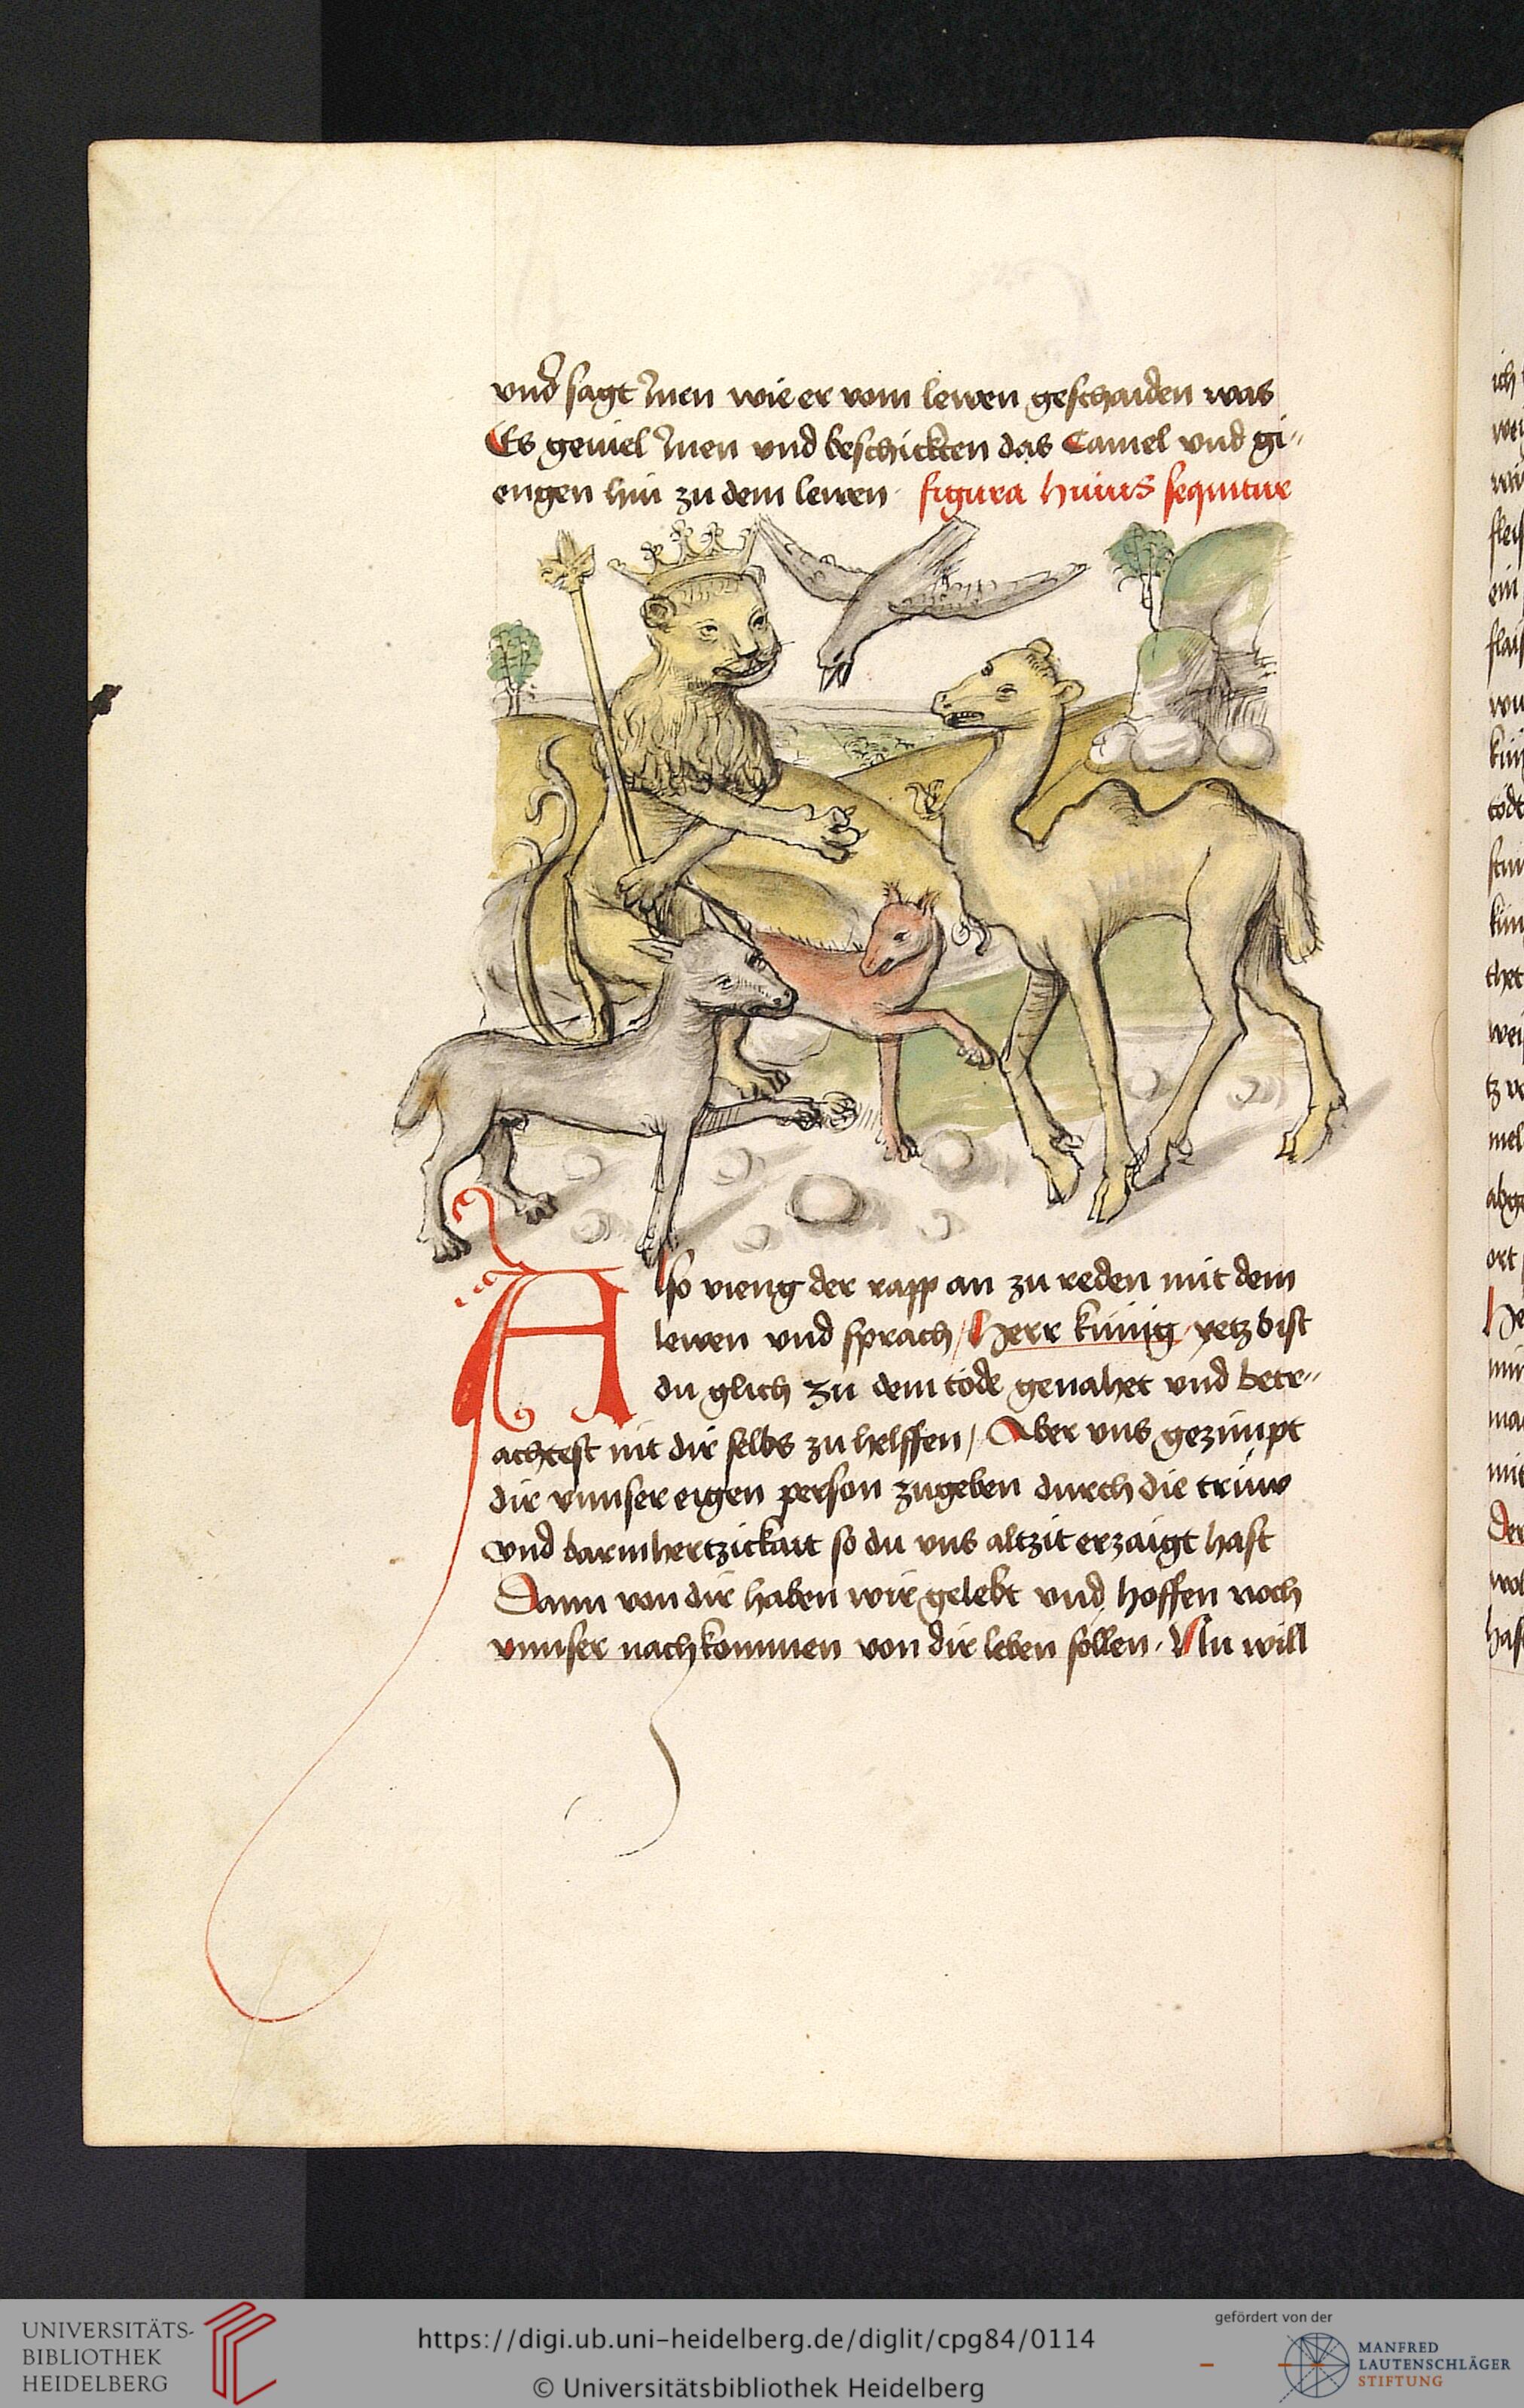 vnd sagt Inen wie er vom lewen geschaiden was
Es geuiel Inen vnd beschickten das Camel vnd gi„
engen hin zu dem lewen · figura huius sequitur
Also vieng der rapp an zu reden mit dem
lewen vnd sprach / Herr künig yetz bist
du glich zu dem tode genahet vnd betr„
achtest nit dir selbs zu helffen / Aber vns gezimpt
dir vnnser eigen person zugeben durch die trüw
vnd barmhertzickait so du vns altzit erzaigt hast
Dann von dir haben wir gelebt vnd hoffen noch
vnnser nachkommen von dir leben söllen · Nu will
UNIVERSITÄTS-
BIBLIOTHEK
HEIDELBERG
https://digi.ub.uni-heidelberg.de/diglit/cpg84/0114
© Universitätsbibliothek Heidelberg
gefördert von der
MANFRED
LAUTENSCHLÄGER
STIFTUNG